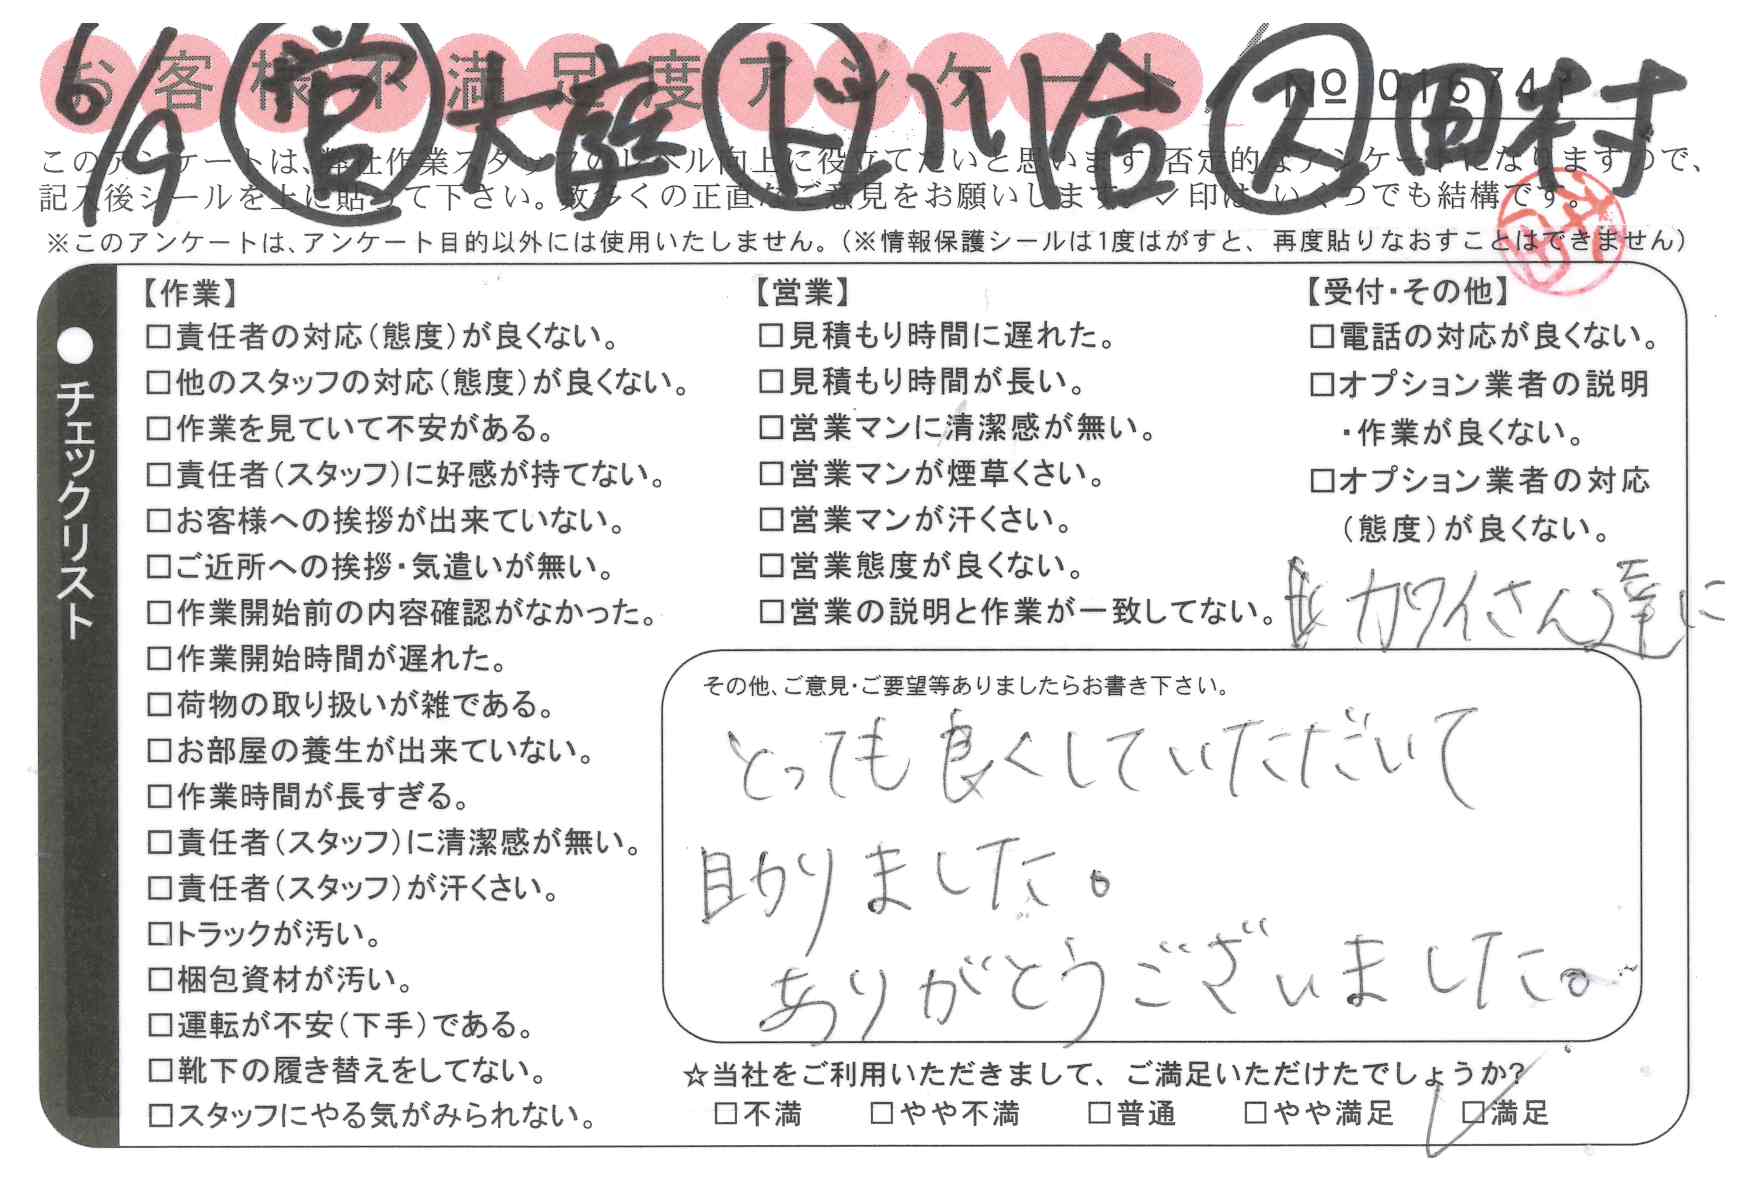 お客様不満足度アンケート
6/9 営 大庭 ド 川合 ス 田村
このアンケートは、弊社作業スタッフのレベル向上に役立てたいと思います。否定的なアンケートになりますので、
記入後シールを上に貼って下さい。数多くの正直なご意見をお願いします。✓印は、いくつでも結構です。
※このアンケートは、アンケート目的以外には使用いたしません。（※情報保護シールは1度はがすと、再度貼りなおすことはできません）
●チェックリスト
【作業】
□責任者の対応（態度）が良くない。
□他のスタッフの対応（態度）が良くない。
□作業を見ていて不安がある。
□責任者（スタッフ）に好感が持てない。
□お客様への挨拶が出来ていない。
□ご近所への挨拶・気遣いが無い。
□作業開始前の内容確認がなかった。
□作業開始時間が遅れた。
□荷物の取り扱いが雑である。
□お部屋の養生が出来ていない。
□作業時間が長すぎる。
□責任者（スタッフ）に清潔感が無い。
□責任者（スタッフ）が汗くさい。
□トラックが汚い。
□梱包資材が汚い。
□運転が不安（下手）である。
□靴下の履き替えをしてない。
□スタッフにやる気がみられない。
【営業】
□見積もり時間に遅れた。
□見積もり時間が長い。
□営業マンに清潔感が無い。
□営業マンが煙草くさい。
□営業マンが汗くさい。
□営業態度が良くない。
□営業の説明と作業が一致してない。
【受付・その他】
□電話の対応が良くない。
□オプション業者の説明
・作業が良くない。
□オプション業者の対応
（態度）が良くない。
カワイさん達に
その他、ご意見・ご要望等ありましたらお書き下さい。
とっても良くしていただいて
助かりました。
ありがとうございました。
☆当社をご利用いただきまして、ご満足いただけたでしょうか?
□不満 □やや不満 □普通 □やや満足 □満足